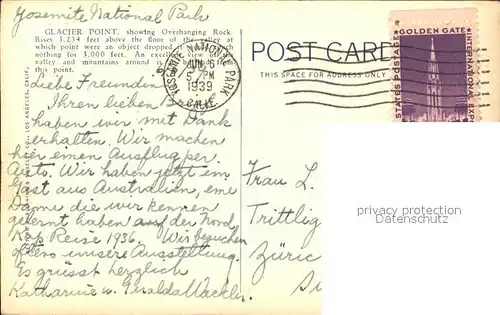 Yosemite National Park
GLACIER POINT, showing Overhanging Rock
Rises 3,234 feet above the floor of the valley at
which point were an object dropped it would touch
nothing for 3,000 feet. An excellent view of the
valley and mountains around is to be had from
this point.
Liebe Freundin
Ihren lieben Brief
haben wir mit Dank
erhalten. Wir machen
hier einen Ausflug per
Auto. Wir haben jetzt ein
Gast aus Australien, eine
Dame die wir kennen
gelernt haben auf der Nord
Kap Reise 1936. Wir besuchen
öfters unsere Ausstellung.
Es grüsst herzlich
Katharine u.
YOSEMITE NATIONAL PARK
JUN 16
5 PM
1939
CALIF.
POST CARD
THIS SPACE FOR ADDRESS ONLY
GOLDEN GATE
INTERNATIONAL EXPO
STATES POSTAGE
Frau L.
Trittlig
Züric
privacy protection
Datenschutz
LOS ANGELES, CALIF.